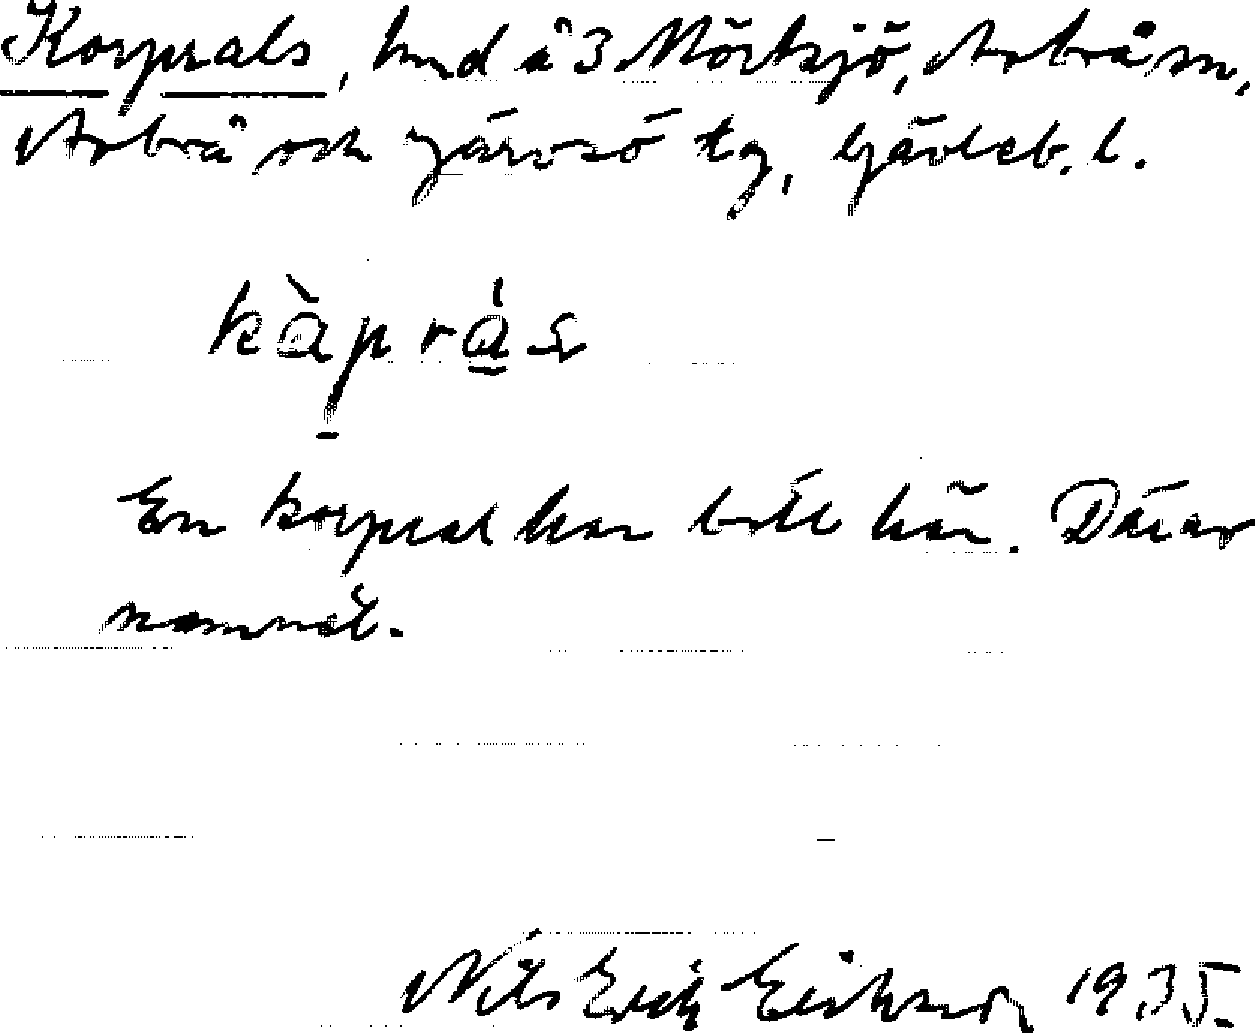 Korprals, hmd å 3 Mörtsjö, Arbrå sn,
Arbrå och Järvsö tg, Gävleb. l.
kàprás
En korpral har bott här. Därav
namnet.
Nils Erik Eriksson 1935.